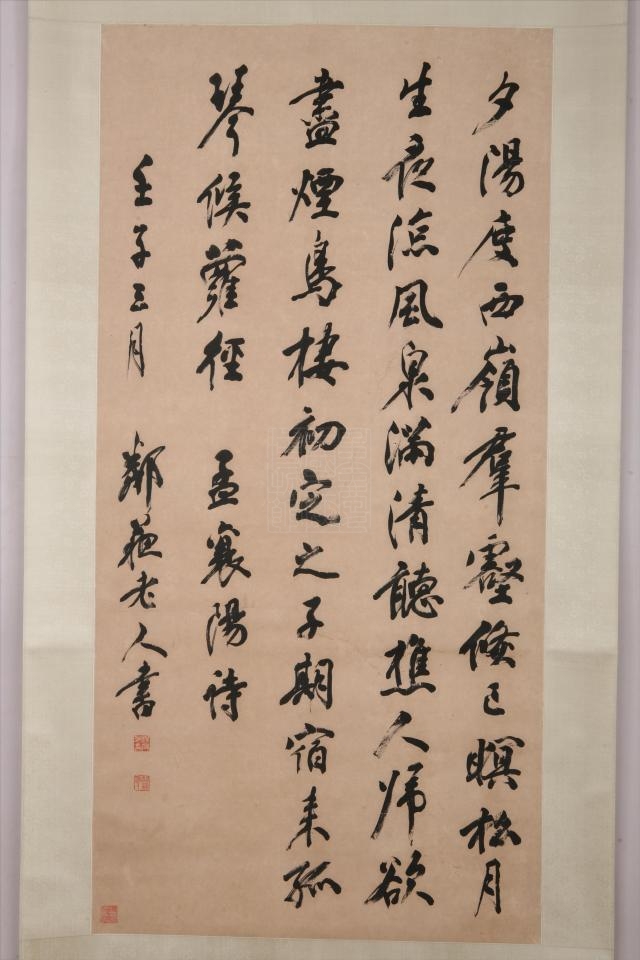 夕陽度西嶺羣壑倏已暝松月
生夜涼風泉滿清聽樵人歸欲
盡煙鳥棲初定之子期宿來孤
琴候蘿徑 孟襄陽詩
壬子三月 鄰蘇老人書